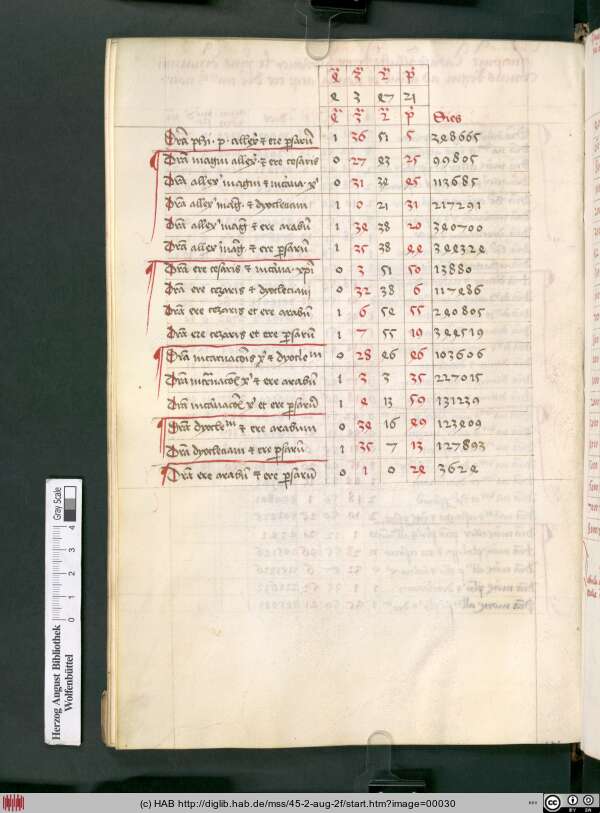 4 3 2 p
4 3 47 21
4 3 2 p Dies
Dria phi · p · allexi et ere persarum 1 36 51 5 348665
Dria magni allexi et ere cesaris 0 27 43 25 99805
Dria allexi magni et incarna · xi 0 31 34 45 113685
Dria allexi mag · et dyocleciani 1 0 21 31 217291
Dria allexi mag et ere arabum 1 34 38 20 340700
Dria allexi mag et ere persarum 1 35 38 44 344324
Dria ere cesaris et incarna · xpi 0 3 51 50 13880
Dria ere cezaris et dyocleciani 0 32 38 6 117486
Dria ere cezaris et ere arabum 1 6 54 55 240805
Dria ere cezaris et ere persarum 1 7 55 19 344519
Dria incarnacionis xi et dyocle 0 28 46 46 103606
Dria incarnacionis xi et ere arabum 1 3 3 35 227015
Dria incarnacionis xi et ere persarum 1 4 13 50 131239
Dria dyocle et ere arabum 0 34 16 49 123409
Dria dyocleciani et ere persarum 1 35 7 13 127893
Dria ere arabum et ere persarum 0 1 0 24 3624
Herzog August Bibliothek
Wolfenbüttel
Gray Scale
0 1 2 3 4
(c) HAB http://diglib.hab.de/mss/45-2-aug-2f/start.htm?image=00030